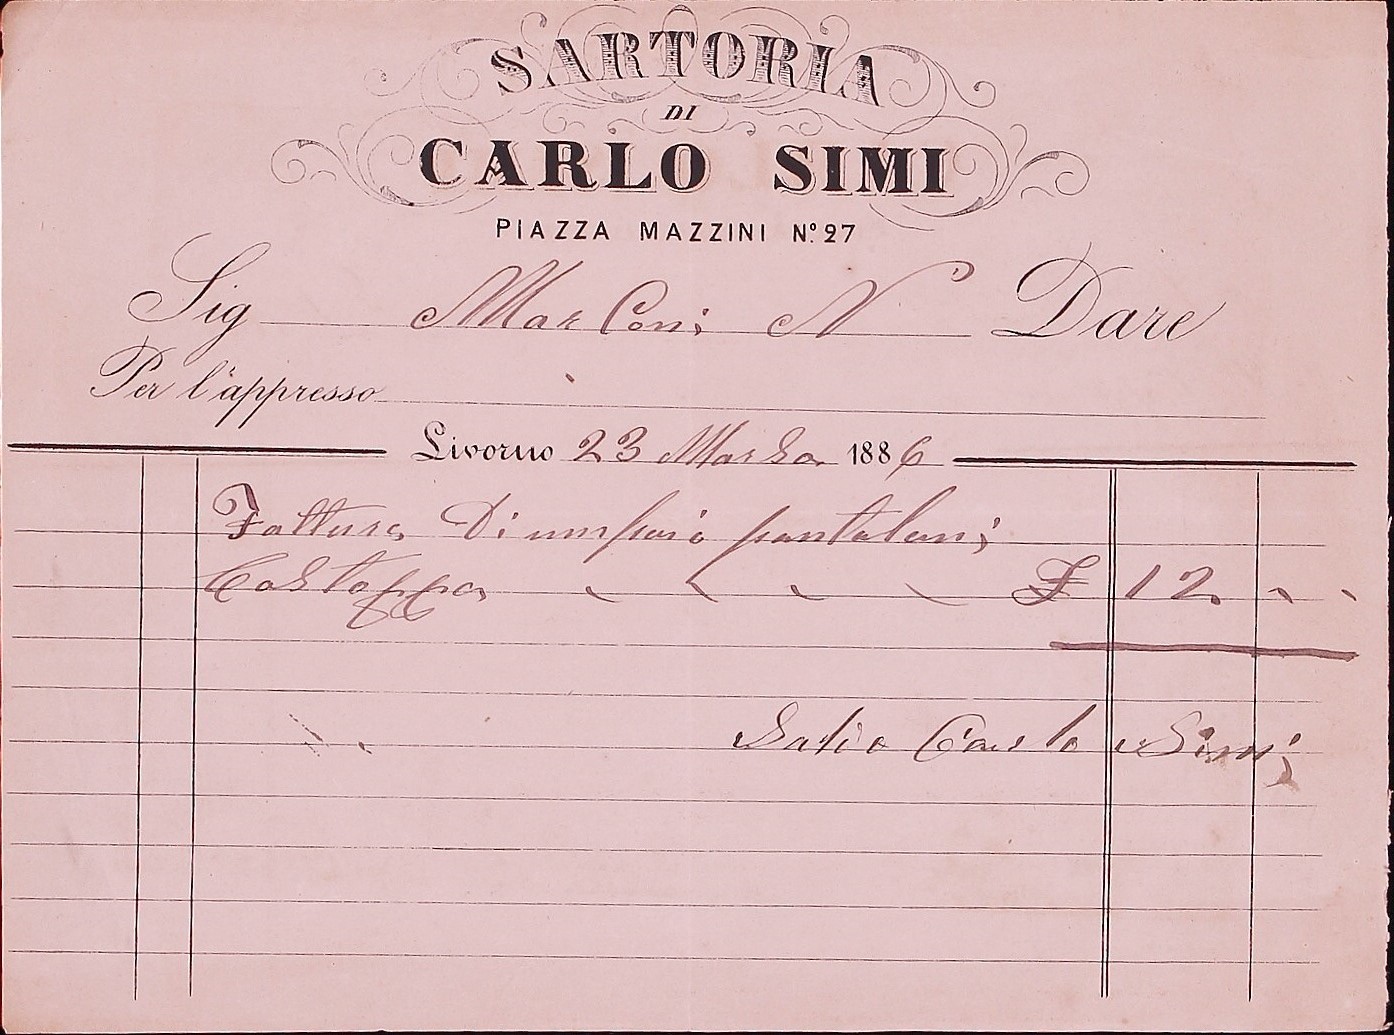 SARTORIA
DI
CARLO SIMI
PIAZZA MAZZINI Nº 27
Sig Marconi N Dare
Per l'appresso
Livorno 23 Marzo 1886
Fattura Di un paio pantaloni
£ 12 " "
Saldo Carlo Simi